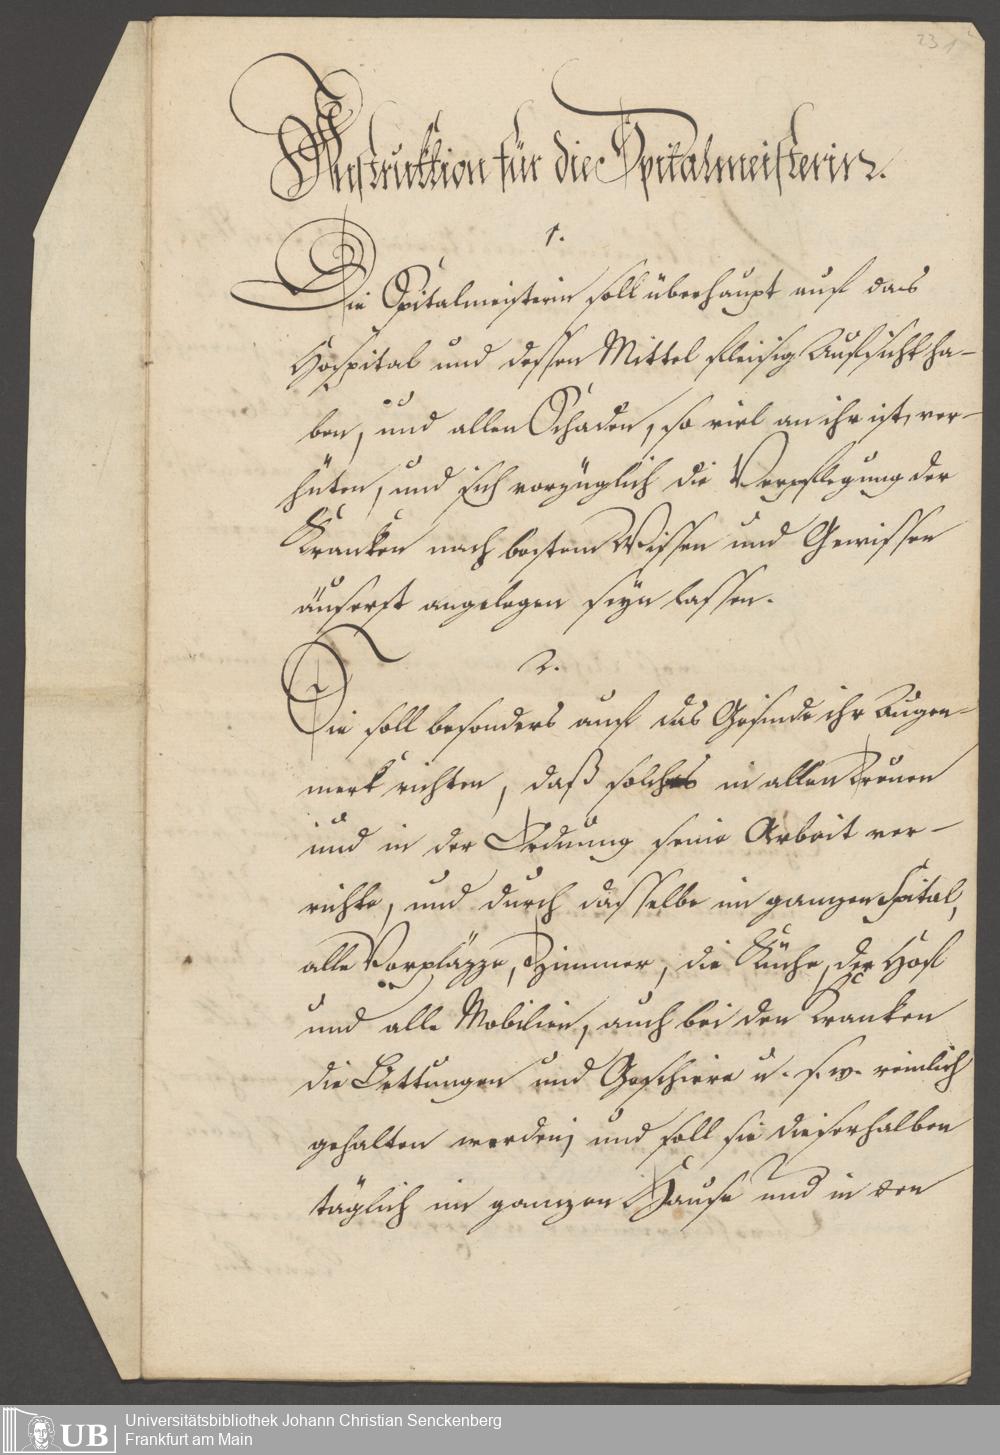 23 1
Instruktion für die Spitalmeisterin.
1.
Die Spitalmeisterin soll überhaupt auf das
Hospital und dessen Mittel fleisig Aufsicht ha-
ben, und allen Schaden, so viel an ihr ist, ver-
hüten, und sich vorzüglich die Verpflegung der
Kranken nach bestem Wissen und Gewissen
äuserst angelegen seyn lassen.
2.
Sie soll besonders auf das Gesinde ihr Augen-
merk richten, daß solches in allen Treuen
und in der Ordnung seine Arbeit ver-
richte, und durch dasselbe im ganzen Spital,
alle Vorpläzze, Zimmer, die Küche, der Hof
und alle Mobilien, auch bei den Kranken
die Bettungen und Geschirre u. s. w. reinlich
gehalten werden; und soll sie dieserhalben
täglich im ganzen Hause und in den
UB
Universitätsbibliothek Johann Christian Senckenberg
Frankfurt am Main